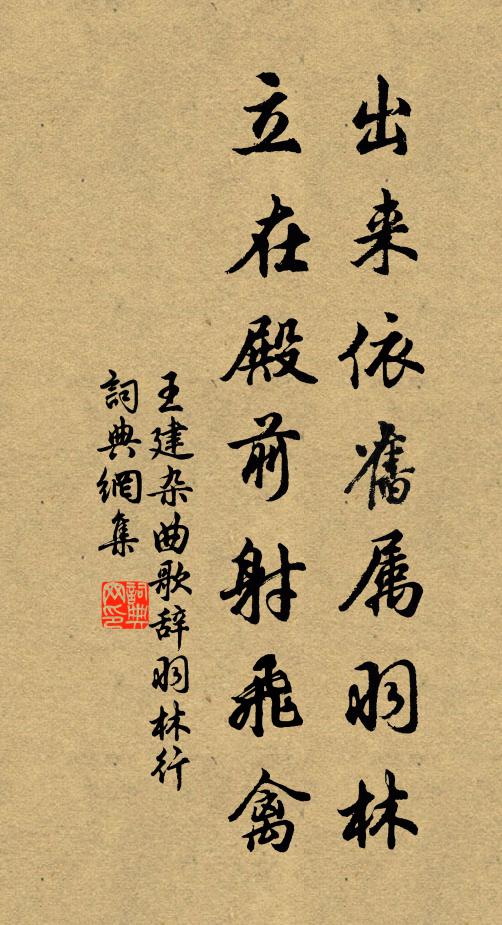 出来依舊属羽林
立在殿前射飛禽
王建杂曲歌辞羽林行
詞典網集
詞典网印